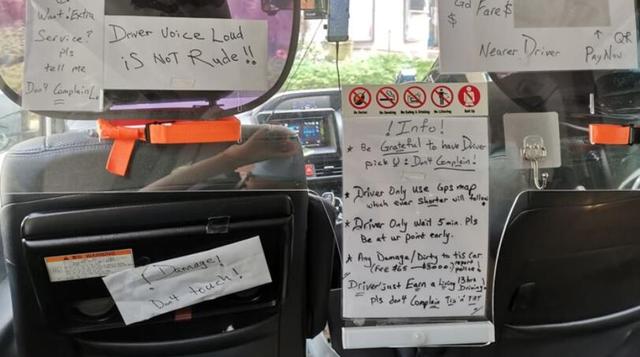 Want Extra
Service?
pls
tell me
Don't Complain!
Driver Voice Loud
iS NoT Rude!!
Gd Fare $
$
Nearer Driver
QR
PayNow
No Smoking
! Info!
* Be Grateful to have Driver
pick U & Don't Complain!
* Driver Only Use Gps map
which ever Shorter will follow
* Driver Only Wait 5 min. Pls
Be at ur point early.
* Any Damage/Dirty to tis Car
(Fee $65 → $5000) report police!
Driver just Earn a Living 13 hrs Driving.
pls don't Complain
WARNING
! Damage!
Don't touch!